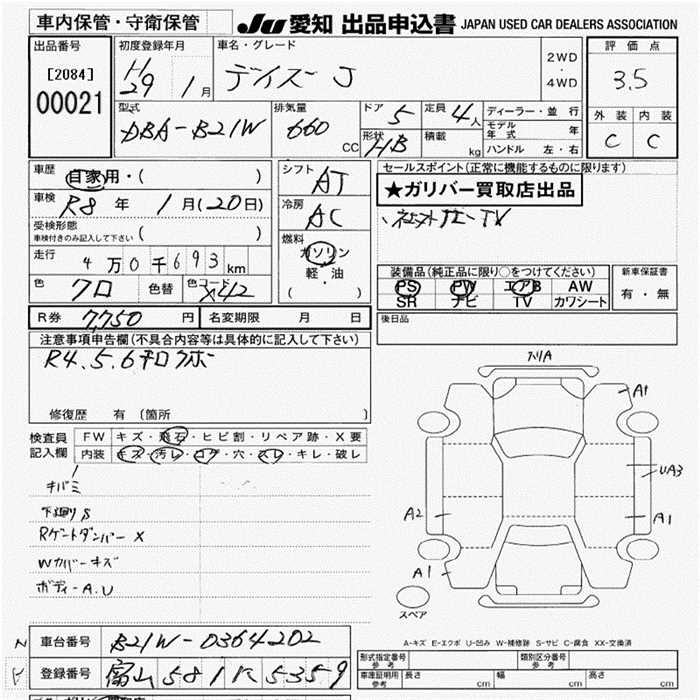 車内保管・守衛保管
JU 愛知 出品申込書 JAPAN USED CAR DEALERS ASSOCIATION
出品番号
[2084]
00021
初度登録年月
H29 1月
車名・グレード
デイズ J
2WD
・
4WD
評価点
3.5
外装 内装
C C
型式
DBA-B21W
排気量
660 CC
ドア 5
形状 HB
定員 4人
積載 kg
ディーラー・並行
モデル年式 年
ハンドル 左・右
車歴
自家用・( )
車検 R8年 1月(20日)
受検形態
車検付きのみ記入して下さい ( )
走行 4万0千693km
色 クロ 色替 色コード X42
シフト
AT
冷房
AC
燃料
ガソリン
軽・油
( )
セールスポイント(正常に機能するものに限ります)
★ガリバー買取店出品
・社外ナビ-TV
装備品(純正品に限り○をつけてください)
PS PW エアB AW
SR ナビ TV カワシート
新車保証書
有・無
R券 7,750円 名変期限 月 日
後日品
注意事項申告欄(不具合内容等は具体的に記入して下さい)
R4.5.6
修復歴 有(箇所 )
検査員
記入欄
FW キズ・飛石・ヒビ割・リペア跡・X要
内装 キズ・汚レ・コゲ・穴・スレ・キレ・破レ
キバミ
下廻りS
Rゲートダンパー X
Wカバーキズ
ボディーA.U
A1
UA3
A2
A1
A1
スペア
A-キズ E-エクボ U-凹み W-補修跡 S-サビ C-腐食 XX-交換済
車台番号 B21W-0364202
登録番号 富山 581 に 5359
形式指定番号
参考
類別区分番号
参考
車庫証明用
参考
長さ cm 幅 cm 高さ cm